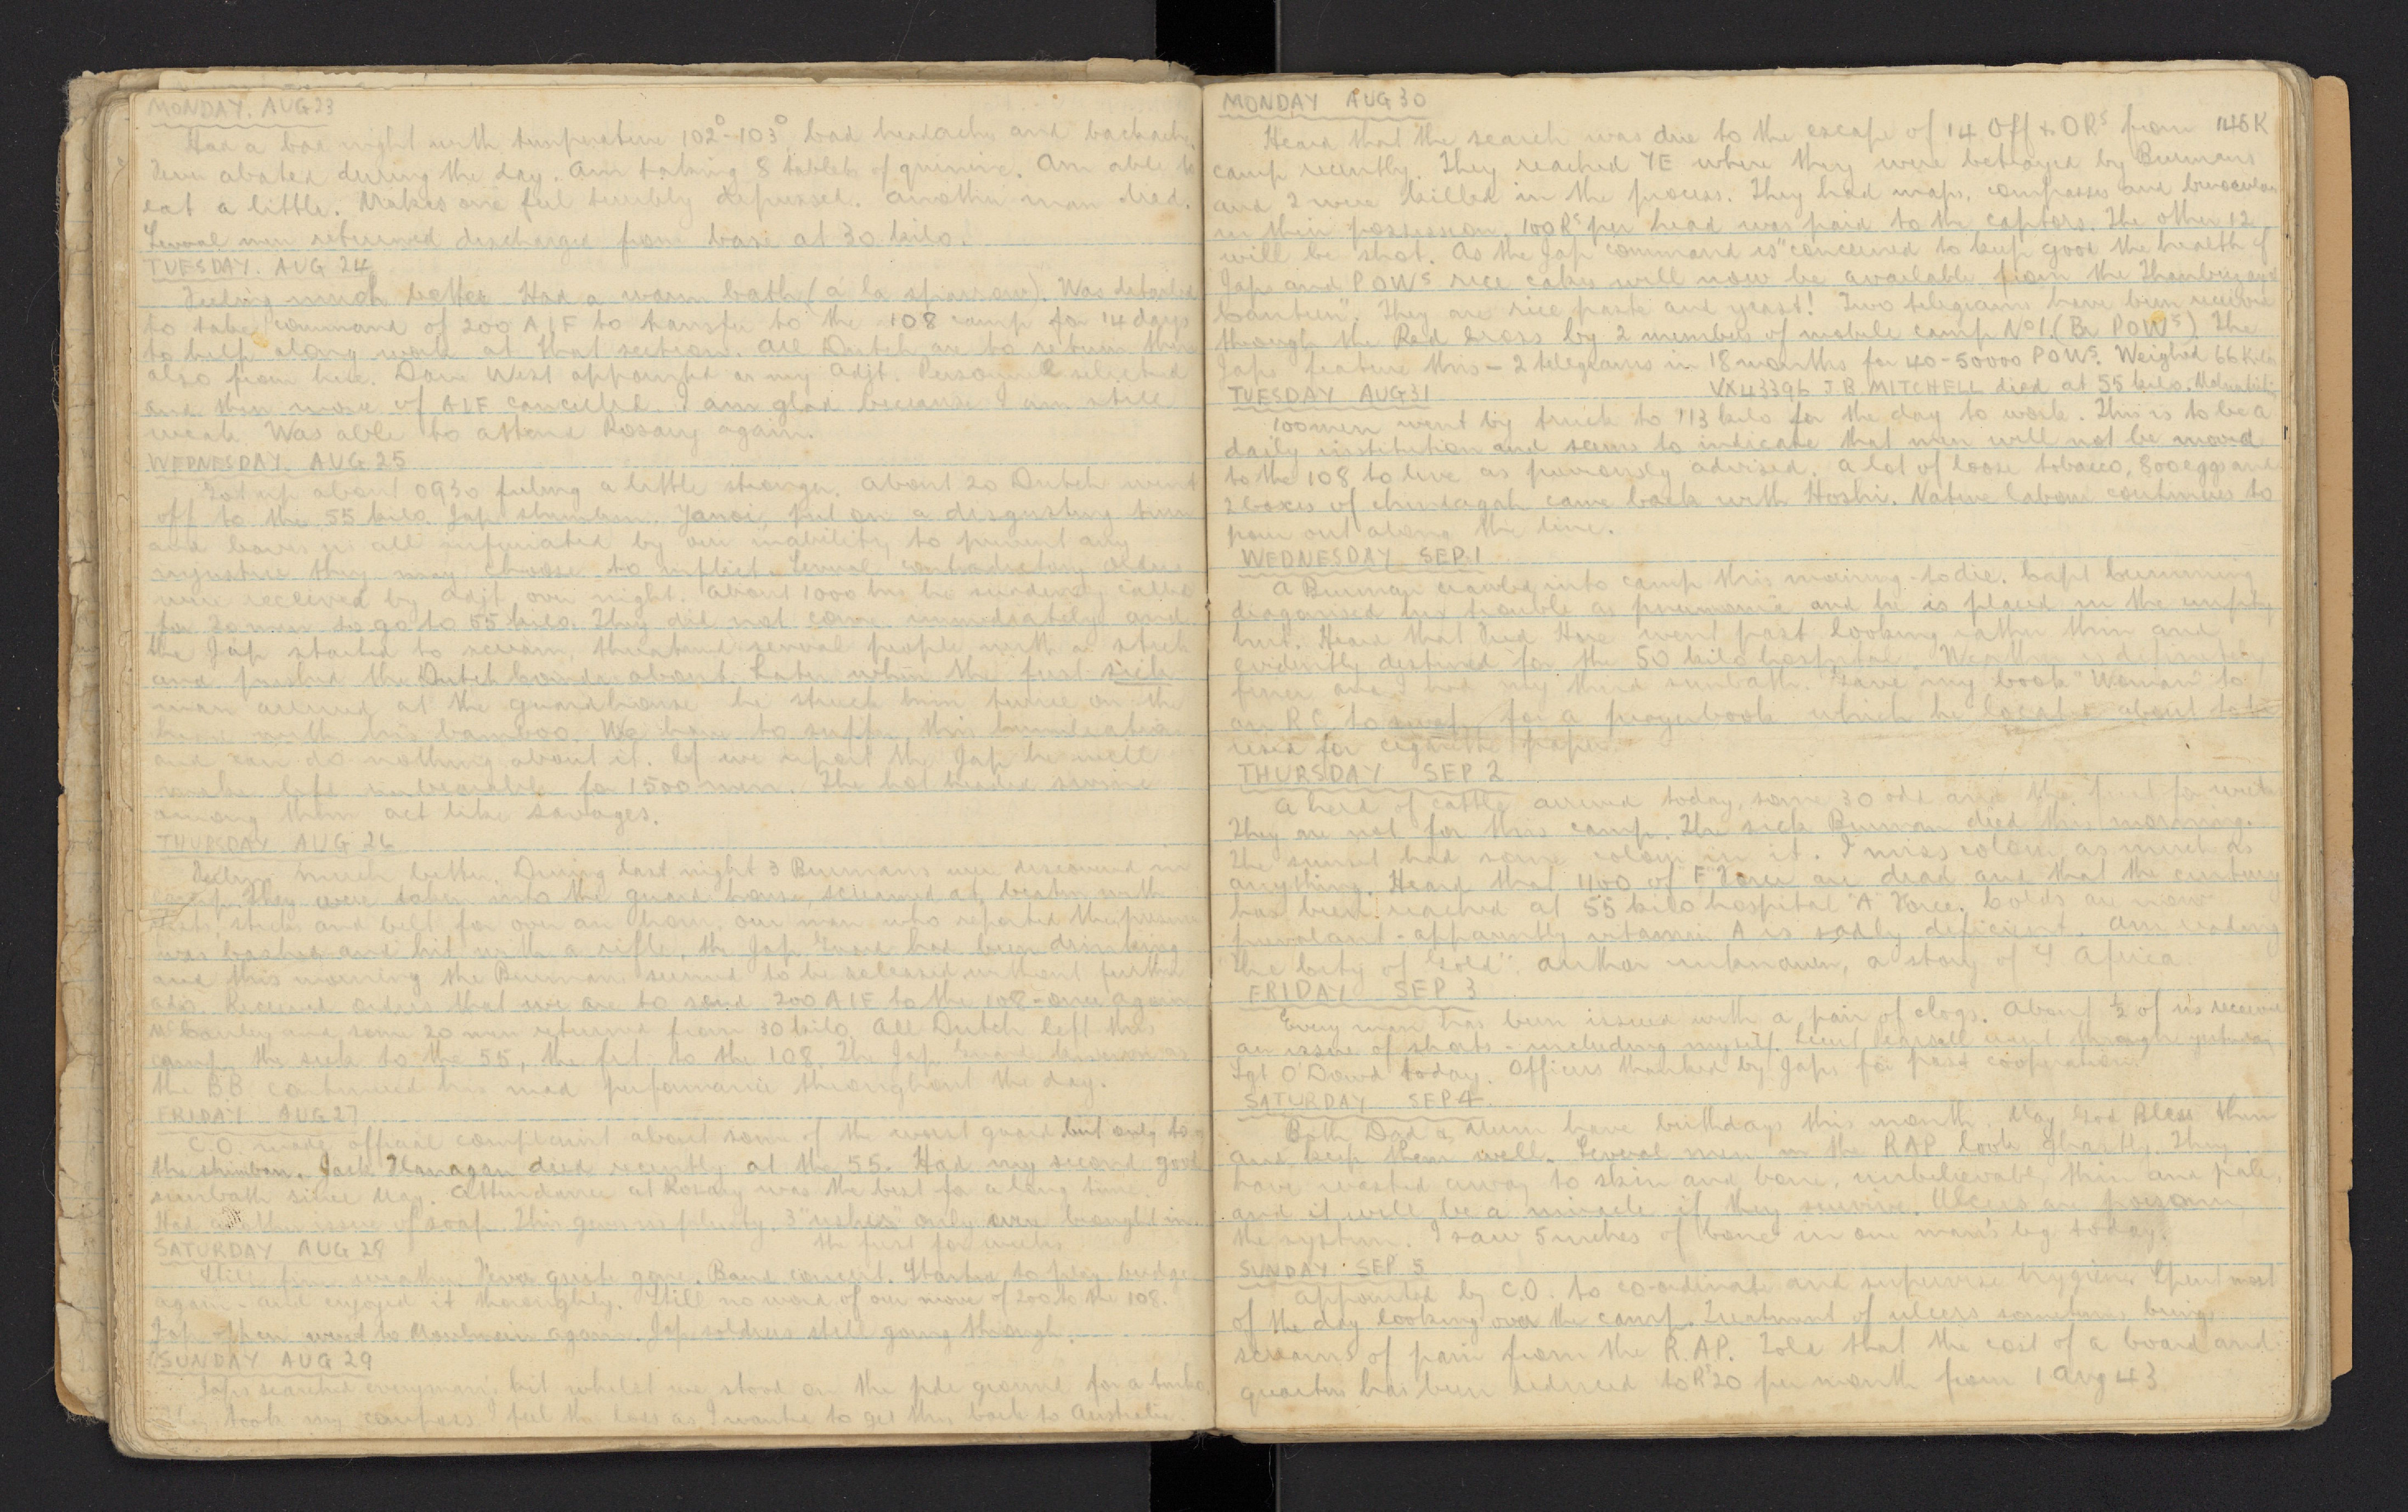 MONDAY. AUG 23
Had a bad night with temperature 102°-103° bad headache and backache.
Fever abated during the day. Am taking 8 tablets of quinine. Am able to
eat a little. Makes one feel terribly depressed. Another man died.
Several men returned discharged from base at 30 kilo.
TUESDAY. AUG 24
Feeling much better. Had a warm bath (a la sparrow). Was detailed
to take command of 200 AIF to transfer to the 108 camp for 14 days
to help along work at that section. All Dutch are to return there
also from here. Dave West appointed as my Adjt. Personnel selected
and then move of AIF cancelled. I am glad because I am still
weak. Was able to attend Rosary again.
WEDNESDAY. AUG 25
Got up about 0930 feeling a little stronger. About 20 Dutch went
off to the 55 kilo. Jap shimban Yanoi, put on a disgusting turn
and leaves us all infuriated by our inability to prevent any
injustice they may choose to inflict. Several contradictory orders
were received by Adjt over night. About 1000 hrs he suddenly called
for 20 men to go to 55 kilo. They did not come immediately and
the Jap started to scream, threatened several people with a stick
and pushed the Dutch Comdr about. Later when the first sick
man arrived at the guardhouse he struck him twice on the
with his bamboo. We have to suffer this humiliation
and can do nothing about it. If we report the Jap he will
make life unbearable for 1500 men. The hot headed swine
among them act like savages.
THURSDAY AUG 26
Feeling much better. During last night 3 Burmans were discovered in
camp. They were taken into the guard house, screamed at, beaten with
fists, sticks and belt for over an hour. Our man who reported their presence
was bashed and hit with a rifle. The Jap guard had been drinking
and this morning the Burmans seemed to be released without further
ado. Received orders that we are to send 200 AIF to the 108 - once again
and some 20 men returned from 30 kilo. All Dutch left this
camp, the sick to the 55, the fit to the 108. The Jap guard known as
the B.B continued his mad performance throughout the day.
FRIDAY AUG 27
C.O. made official complaint about some of the worst guard but only to
the shimban. Jack Flanagan died recently at the 55. Had my second good
sunbath since May. Attendance at Rosary was the best for a long time.
Had another issue of soap. This gives us plenty. 3 "ushis" only were brought in
the first for weeks
SATURDAY AUG 28
Still fine weather. Fever quite gone. Band concert. Started to play bridge
again - and enjoyed it thoroughly. Still no word of our move of 200 to the 108.
Jap - then went to Moulmein again. Jap soldiers still going through.
SUNDAY AUG 29
Japs searched everyman's kit whilst we stood on the pde ground for a tenko.
They took my compass. I feel the loss as I wanted to get this back to Australia.
MONDAY AUG 30
Heard that the search was due to the escape of 14 Off & ORs from 148K
camp recently. They reached YE where they were betrayed by Burmans
and 2 were killed in the process. They had maps, compasses and binoculars
in their possession. 100 Rs per head was paid to the captors. The other 12
will be shot. As the Jap command is "concerned to keep good the health of
Japs and POWs rice cakes will now be available from the Thanbuyzayat
Canteen". They are rice paste and yeast! Two telegrams have been received
through the Red Cross by 2 members of mobile camp No 1. (Br POWs). The
Japs feature this - 2 telegrams in 18 months for 40-50000 POWs. Weighed 66 kilos
TUESDAY AUG 31 VX43396 J.B. MITCHELL died at 55 kilo. Malnutrition
100 men went by truck to 113 kilo for the day to work. This is to be a
daily institution and seems to indicate that men will not be moved
to the 108 to live as previously advised. A lot of loose tobacco, 800 eggs and
2 boxes of chindagah came back with Hoshi. Native labour continues to
pour out along the line.
WEDNESDAY SEP. 1
A Burman crawled into camp this morning - to die. Capt Cumming
diagnosed his trouble as pneumonia and he is placed in the empty
hut. Heard that Fred Hore went past looking rather thin and
evidently destined for the 50 kilo hospital. Weather is definitely
finer and I had my third sunbath. Gave my book "Woman" to
an R.C. to swap for a prayerbook which he located about to be
used for cigarette paper.
THURSDAY SEP 2
A herd of cattle arrived today, some 30 odd and the first for weeks
They are not for this camp. The sick Burman died this morning.
The sunset had some colour in it. I miss colour as much as
anything. Heard that 400 of "F" Force are dead and that the century
has been reached at 55 kilo hospital "A" Force. Colds are now
prevalent - apparently vitamin A is sadly deficient. Am reading
"The City of Gold". Author unknown, a story of S Africa.
FRIDAY SEP 3
Every man has been issued with a pair of clogs. About ½ of us received
an issue of shorts - including myself. Lieut went through yesterday
Sgt O'Dowd today. Officers thanked by Japs for past cooperation!
SATURDAY SEP 4
Both Dad & Mum have birthdays this month. May God Bless them
and keep them well. Several men in the RAP look ghastly. They
have wasted away to skin and bone, unbelievably thin and pale,
and it will be a miracle if they survive. Ulcers are poisoning
the system. I saw 5 inches of bone in one man's leg today.
SUNDAY SEP 5
Appointed by C.O. to co-ordinate and supervise hygiene. Spent most
of the day looking over the camp. Treatment of ulcers sometimes brings
screams of pain from the R.A.P. Told that the cost of a board and
quarters has been reduced to Rs 20 per month from 1 Aug 43